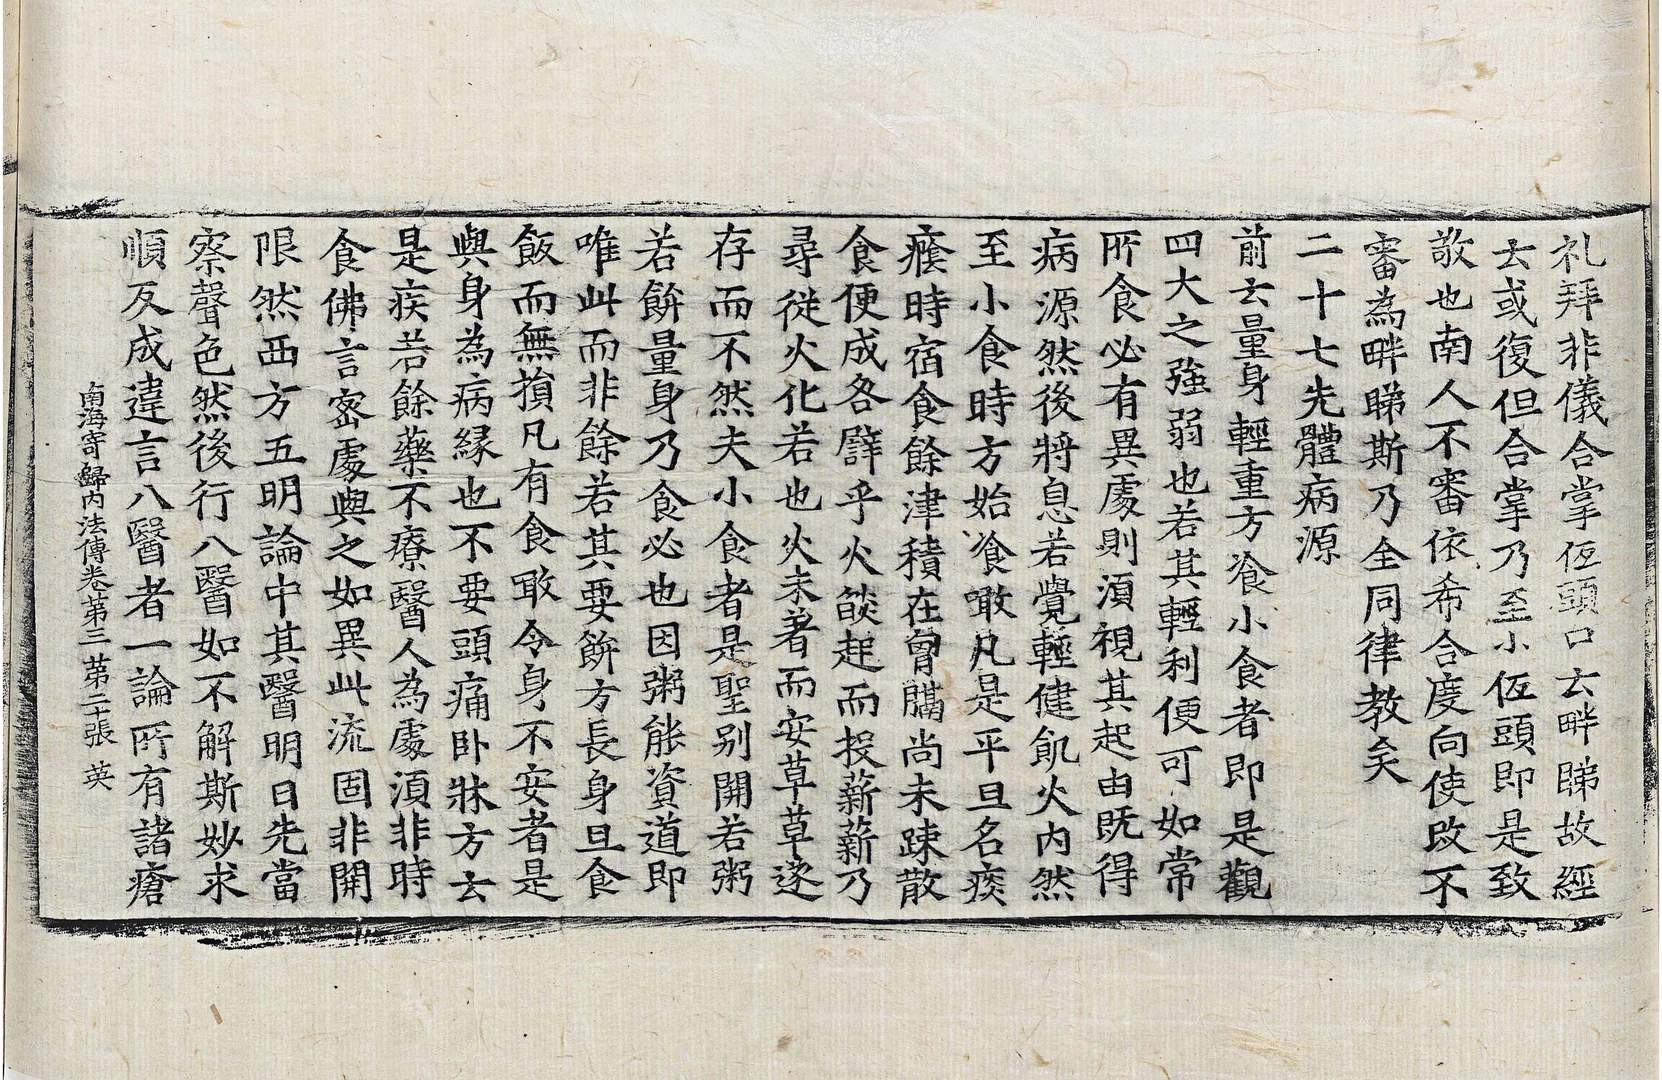 礼拜非儀合掌伍頭口云畔睇故經
云或復但合掌乃至小伍頭即是致
敬也南人不審依希合度向使改不
審為畔睇斯乃全同律教矣
二十七先體病源
前云量身輕重方飡小食者即是觀
四大之強弱也若其輕利便可如常
所食必有異處則湏視其起由既得
病源然後將息若覺輕健飢火內然
至小食時方始飡噉凡是平旦名痰
癊時宿食餘津積在胷膈尚未踈散
食便成咎譬乎火燄起而投薪薪乃
尋從火化若也火未著而安草草遂
存而不然夫小食者是聖別開若粥
若餅量身乃食必也因粥能資道即
唯此而非餘若其要餅方長身旦食
飯而無損凡有食敢令身不安者是
與身為病緣也不要頭痛卧牀方云
是疾若餘藥不療醫人為處湏非時
食佛言密處與之如異此流固非開
限然西方五明論中其醫明曰先當
察聲色然後行八醫如不解斯妙求
順反成違言八醫者一論所有諸瘡
南海寄歸內法傳卷第三 第二十張 英